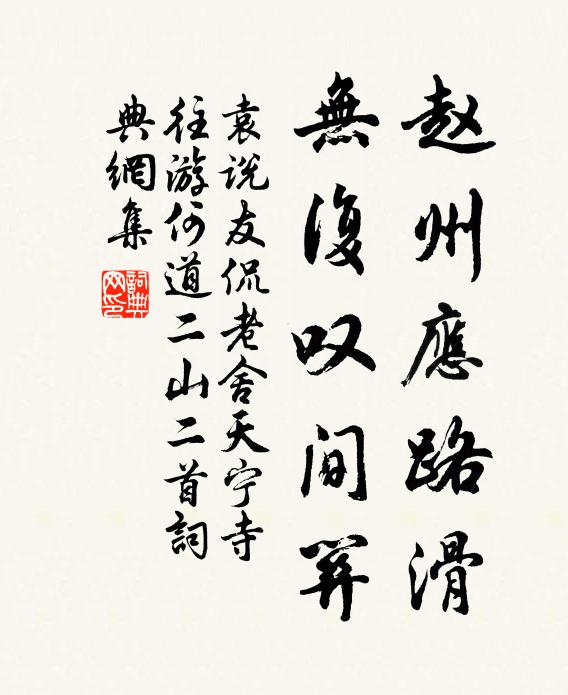 赵州應路滑
無復叹间關
袁说友侃老舍天宁寺
往游何道二山二首詞
典網集
詞典網印